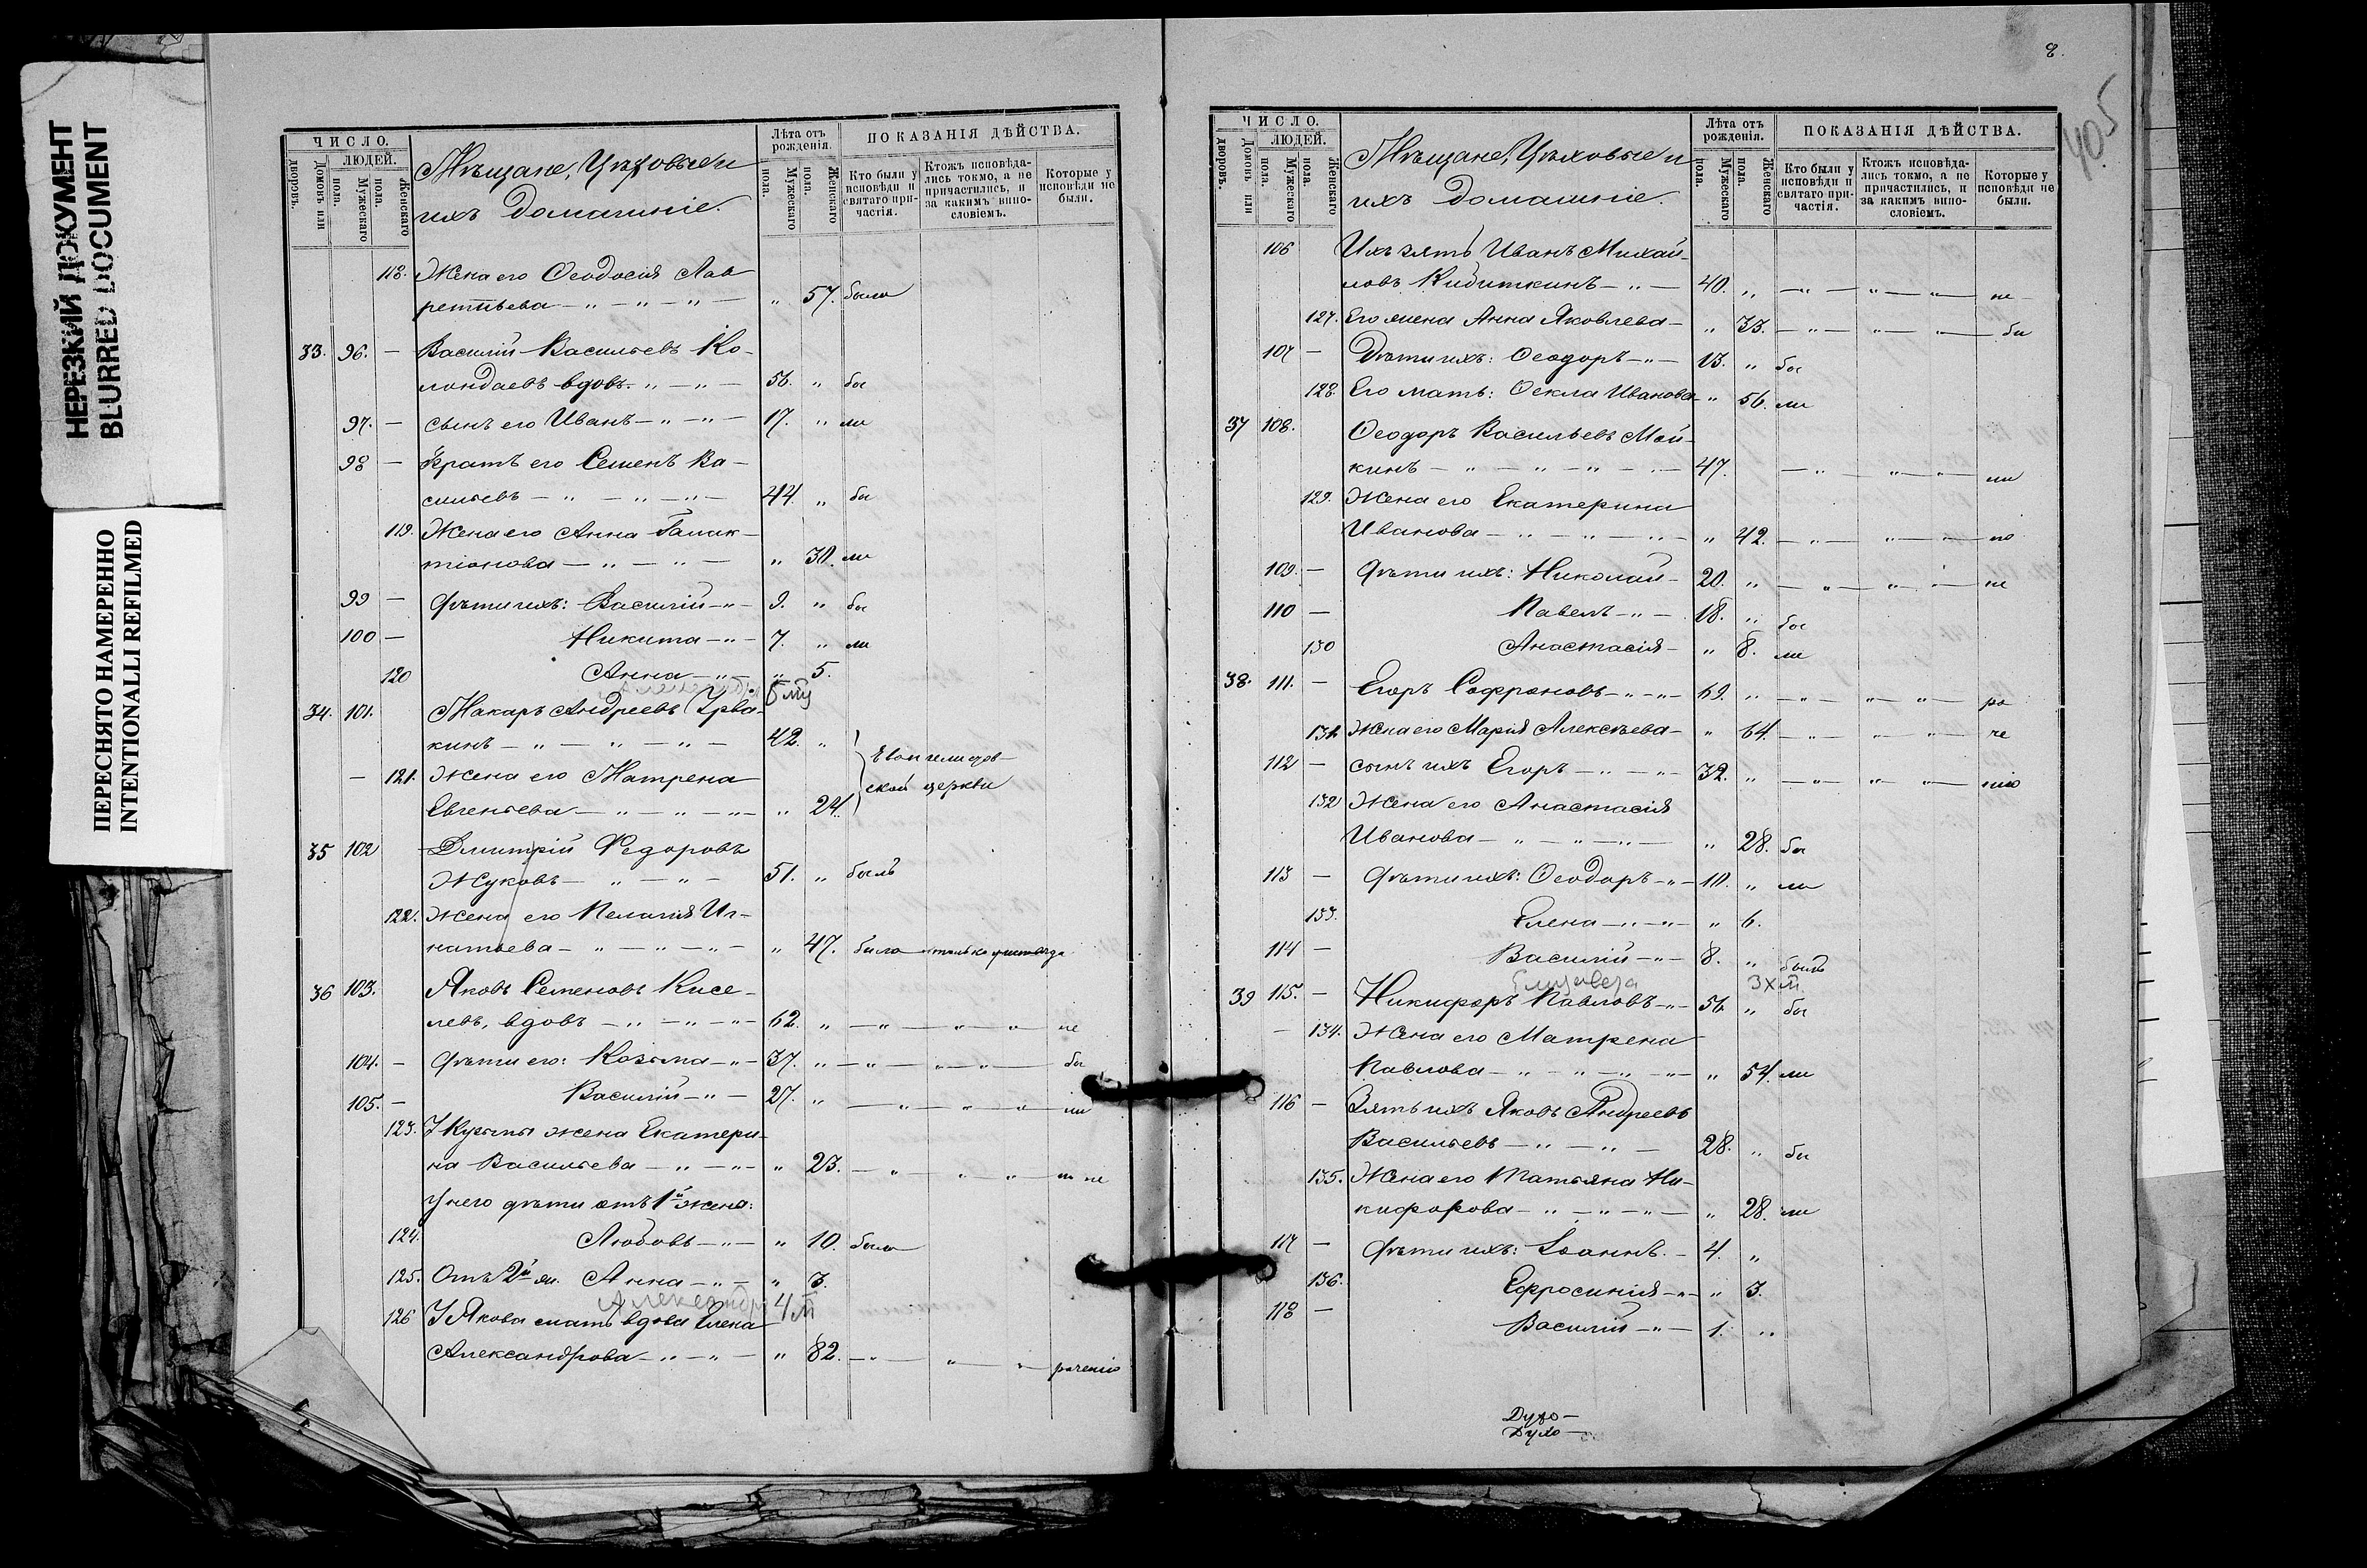 НЕРЕЗКИЙ ДОКУМЕНТ
BLURRED DOCUMENT
ПЕРЕСНЯТО НАМЕРЕННО
INTENTIONALLI REFILMED
ЧИСЛО.
ЛЮДЕЙ.
Домовъ или дворовъ.
Мужескаго пола.
Женскаго пола.
Мѣщане, Цѣховые и
ихъ домашніе.
Лѣта отъ рожденія.
Мужескаго пола.
Женскаго пола.
ПОКАЗАНІЯ ДѢЙСТВА.
Кто были у исповѣди и святаго причастія.
Ктожъ исповѣдались токмо, а не причастились, и за какимъ винословіемъ.
Которые у исповѣди не были.
118. Жена его Ѳеодосія Лав
рентьева — " — " — " — " 57. была
33. 96. — Василій Васильевъ Ко-
лондаевъ вдовъ. " — " — 56. " бы
97. — сынъ его Иванъ — " — " — 17. " ли
98 — Братъ его Семенъ Ва-
сильевъ — " — " — " — 44. " бы
119. Жена его Анна Галак-
тіонова — " — " — " 30. ли
99 — Дѣти ихъ: Василій — " — 9. " бы
100 — Никита — " — 7. " ли
120 Анна — " — " 5.
34. 101. Макаръ Андреевъ Урва-
кинъ — " — " — " — 42. "
— 121. Жена его Матрена
Евгеньева — " — " — " — " 24.
Евангелистов-
ской церкви
35 102 Дмитрій Федоровъ
Жуковъ — " — " — 51. " былъ
122. Жена его Пелагія Иг-
натьева — " — " — " — " 47. была только
36 103. Яковъ Семеновъ Кисе-
левъ, вдовъ — " — " — " — 62. " — " — " — " — не
104. — Дѣти его: Козьма — " — 37. " — " — " — " — бы
105. — Василій — " — 27. " — " — " — " — ли
123. У Кузьмы жена Екатери-
на Васильева — " — " — " 23. — " — " — " — не
У него дѣти отъ 1й жены:
124. Любовь — " — " 10. была
125. Отъ 2й ж. Анна — " — " 3.
Александр 4 м
126 У Якова мать вдова Елена
Александрова — " — " — " 82. — " — " — " — раченію
8.
405
ЧИСЛО.
ЛЮДЕЙ.
Домовъ или дворовъ.
Мужескаго пола.
Женскаго пола.
Мѣщане, Цѣховые и
ихъ домашніе.
Лѣта отъ рожденія.
Мужескаго пола.
Женскаго пола.
ПОКАЗАНІЯ ДѢЙСТВА.
Кто были у исповѣди и святаго причастія.
Ктожъ исповѣдались токмо, а не причастились, и за какимъ винословіемъ.
Которые у исповѣди не были.
106 Ихъ зять Иванъ Михай-
ловъ Кибиткинъ — " — 40. " — " — " — " — не
127. Его жена Анна Яковлева — " 33. — " — " — " — бы
107 — Дѣти ихъ: Ѳеодоръ — " — 13. " бы
128. Его мать: Ѳекла Иванова — " 56. ли
37 108. Ѳеодоръ Васильевъ Мой-
кинъ — " — " — " — " — 47. — " — " — " — ли
129. Жена его Екатерина
Иванова — " — " — " — " 42. — " — " — " — по
109. — Дѣти ихъ: Николай — 20. " — " — " — " — не
110 — Павелъ — " — 18. " бы
130 Анастасія — " 8. ли
38. 111. — Егоръ Софроновъ — " — " — 69. " — " — " — " — ра
131. Жена его Марія Алексѣева — " 64. — " — " — " — че
112 — сынъ ихъ Егоръ — " — " — 32. " — " — " — " — нію
132 Жена его Анастасія
Иванова — " — " — " — " 28. бы
113 — Дѣти ихъ: Ѳеодоръ — " — 10. " ли
133. Елена — " — " — " 6.
114 — Василій — " — 8. " былъ
Елизавета 3х м.
39 115. — Никифоръ Павловъ — " — 56. " бы
— 134. Жена его Матрена
Павлова — " — " — " — " — " 54. ли
116 — Зять ихъ Яковъ Андреевъ
Васильевъ — " — " — 28. " бы
135. Жена его Татьяна Ни-
кифорова — " — " — " — " 28. ли
117 — Дѣти ихъ: Іоаннъ. — 4. "
136. Ефросинія — " — " 3.
118 — Василій — " — 1. "
Духо —
Духо —